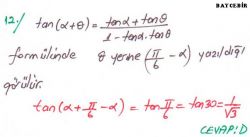 BAYCEBİR
12./ tan(α+θ) = tanα+tanθ / 1-tanα.tanθ
formülünde θ yerine (π/6 - α) yazıldığı
görülür.
tan(α+π/6-α) = tanπ/6 = tan30 = 1/√3
CEVAP: D